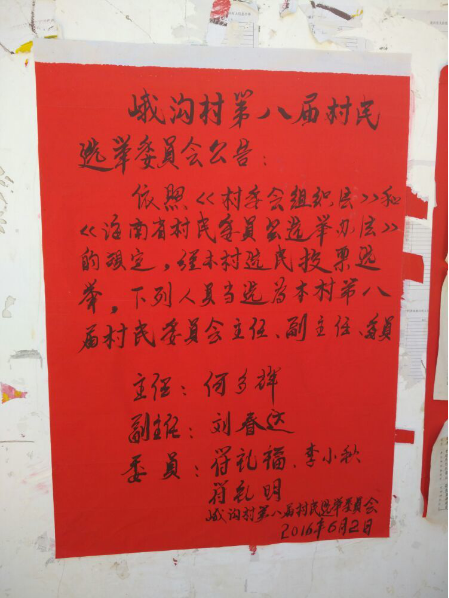 峨沟村第八届村民
选举委员会公告:
依照《村委会组织法》和
《海南省村民委员会选举办法》
的规定,经本村选民投票选
举,下列人员当选为本村第八
届村民委员会主任、副主任、委员
主任:何多辉
副主任:刘春达
委员:符礼福、李小秋
符礼明
峨沟村第八届村民选举委员会
2016年6月2日